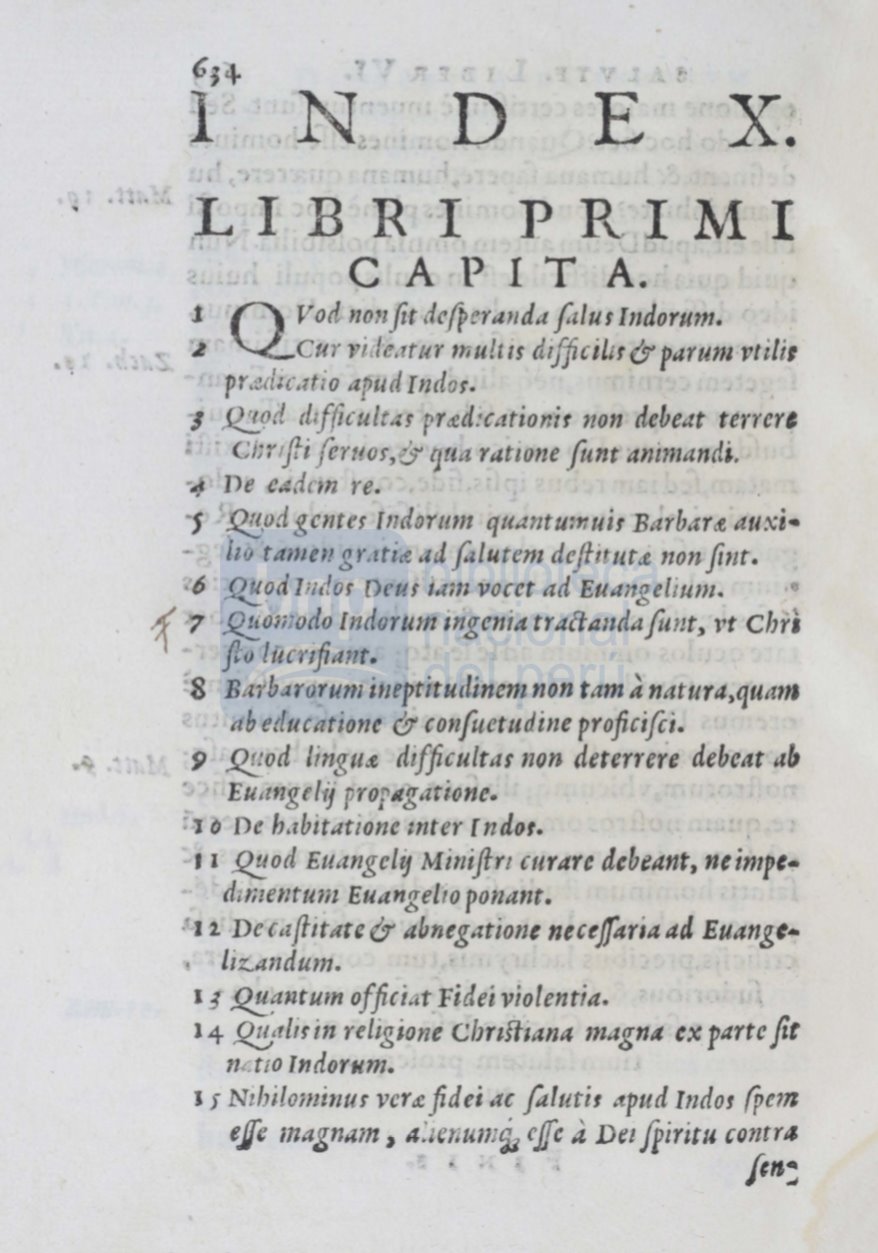 634
INDEX.
LIBRI PRIMI
CAPITA.
1 QVod non ſit deſperanda ſalus Indorum.
2 Cur videatur multis difficilis & parum vtilis
prædicatio apud Indos.
3 Quod difficultas prædicationis non debeat terrere
Chriſti ſeruos, & qua ratione ſunt animandi.
4 De eadem re.
5 Quod gentes Indorum quantumuis Barbaræ auxi-
lio tamen gratiæ ad ſalutem deſtitutæ non ſint.
6 Quod Indos Deus iam vocet ad Euangelium.
7 Quomodo Indorum ingenia tractanda ſunt, vt Chri
ſto lucrifiant.
8 Barbarorum ineptitudinem non tam à natura, quam
ab educatione & conſuetudine proficiſci.
9 Quod linguæ difficultas non deterrere debeat ab
Euangelij propagatione.
10 De habitatione inter Indos.
11 Quod Euangelij Miniſtri curare debeant, ne impe-
dimentum Euangelio ponant.
12 De caſtitate & abnegatione neceſſaria ad Euange-
lizandum.
13 Quantum officiat Fidei violentia.
14 Qualis in religione Chriſtiana magna ex parte ſit
natio Indorum.
15 Nihilominus veræ fidei ac ſalutis apud Indos ſpem
eſſe magnam, alienumq́; eſſe à Dei ſpiritu contra
ſen-
biblioteca
nacional
del perú